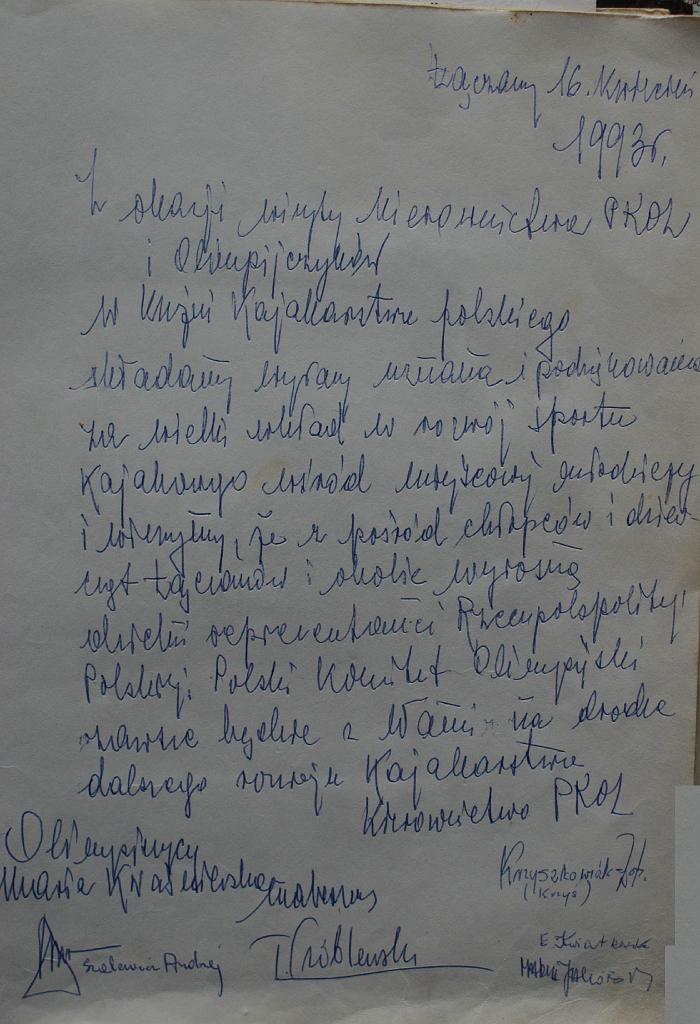 Łączany 16. Kwiecień
1993r.
Z okazji wizyty Kierownictwa PKOL
i Olimpijczyków
w Kuźni Kajakarstwa polskiego
składamy wyrazy uznania i podziękowania
za wielki wkład w rozwój sportu
Kajakowego wśród miejscowej młodzieży
i wierzymy, że z pośród chłopców i dziew
cząt Łączanów i okolic wyrosną
dzielni reprezentanci Rzeczypospolitej
Polskiej. Polski Komitet Olimpijski
zawsze będzie z Wami na drodze
dalszego rozwoju Kajakarstwa
Kierownictwo PKOL
Olimpijczycy
Maria Kwaśniewska
Krzyszkowiak Zdz.
(Krzyś)
Andrzej
Wróblewski
E. Kwiatkowska